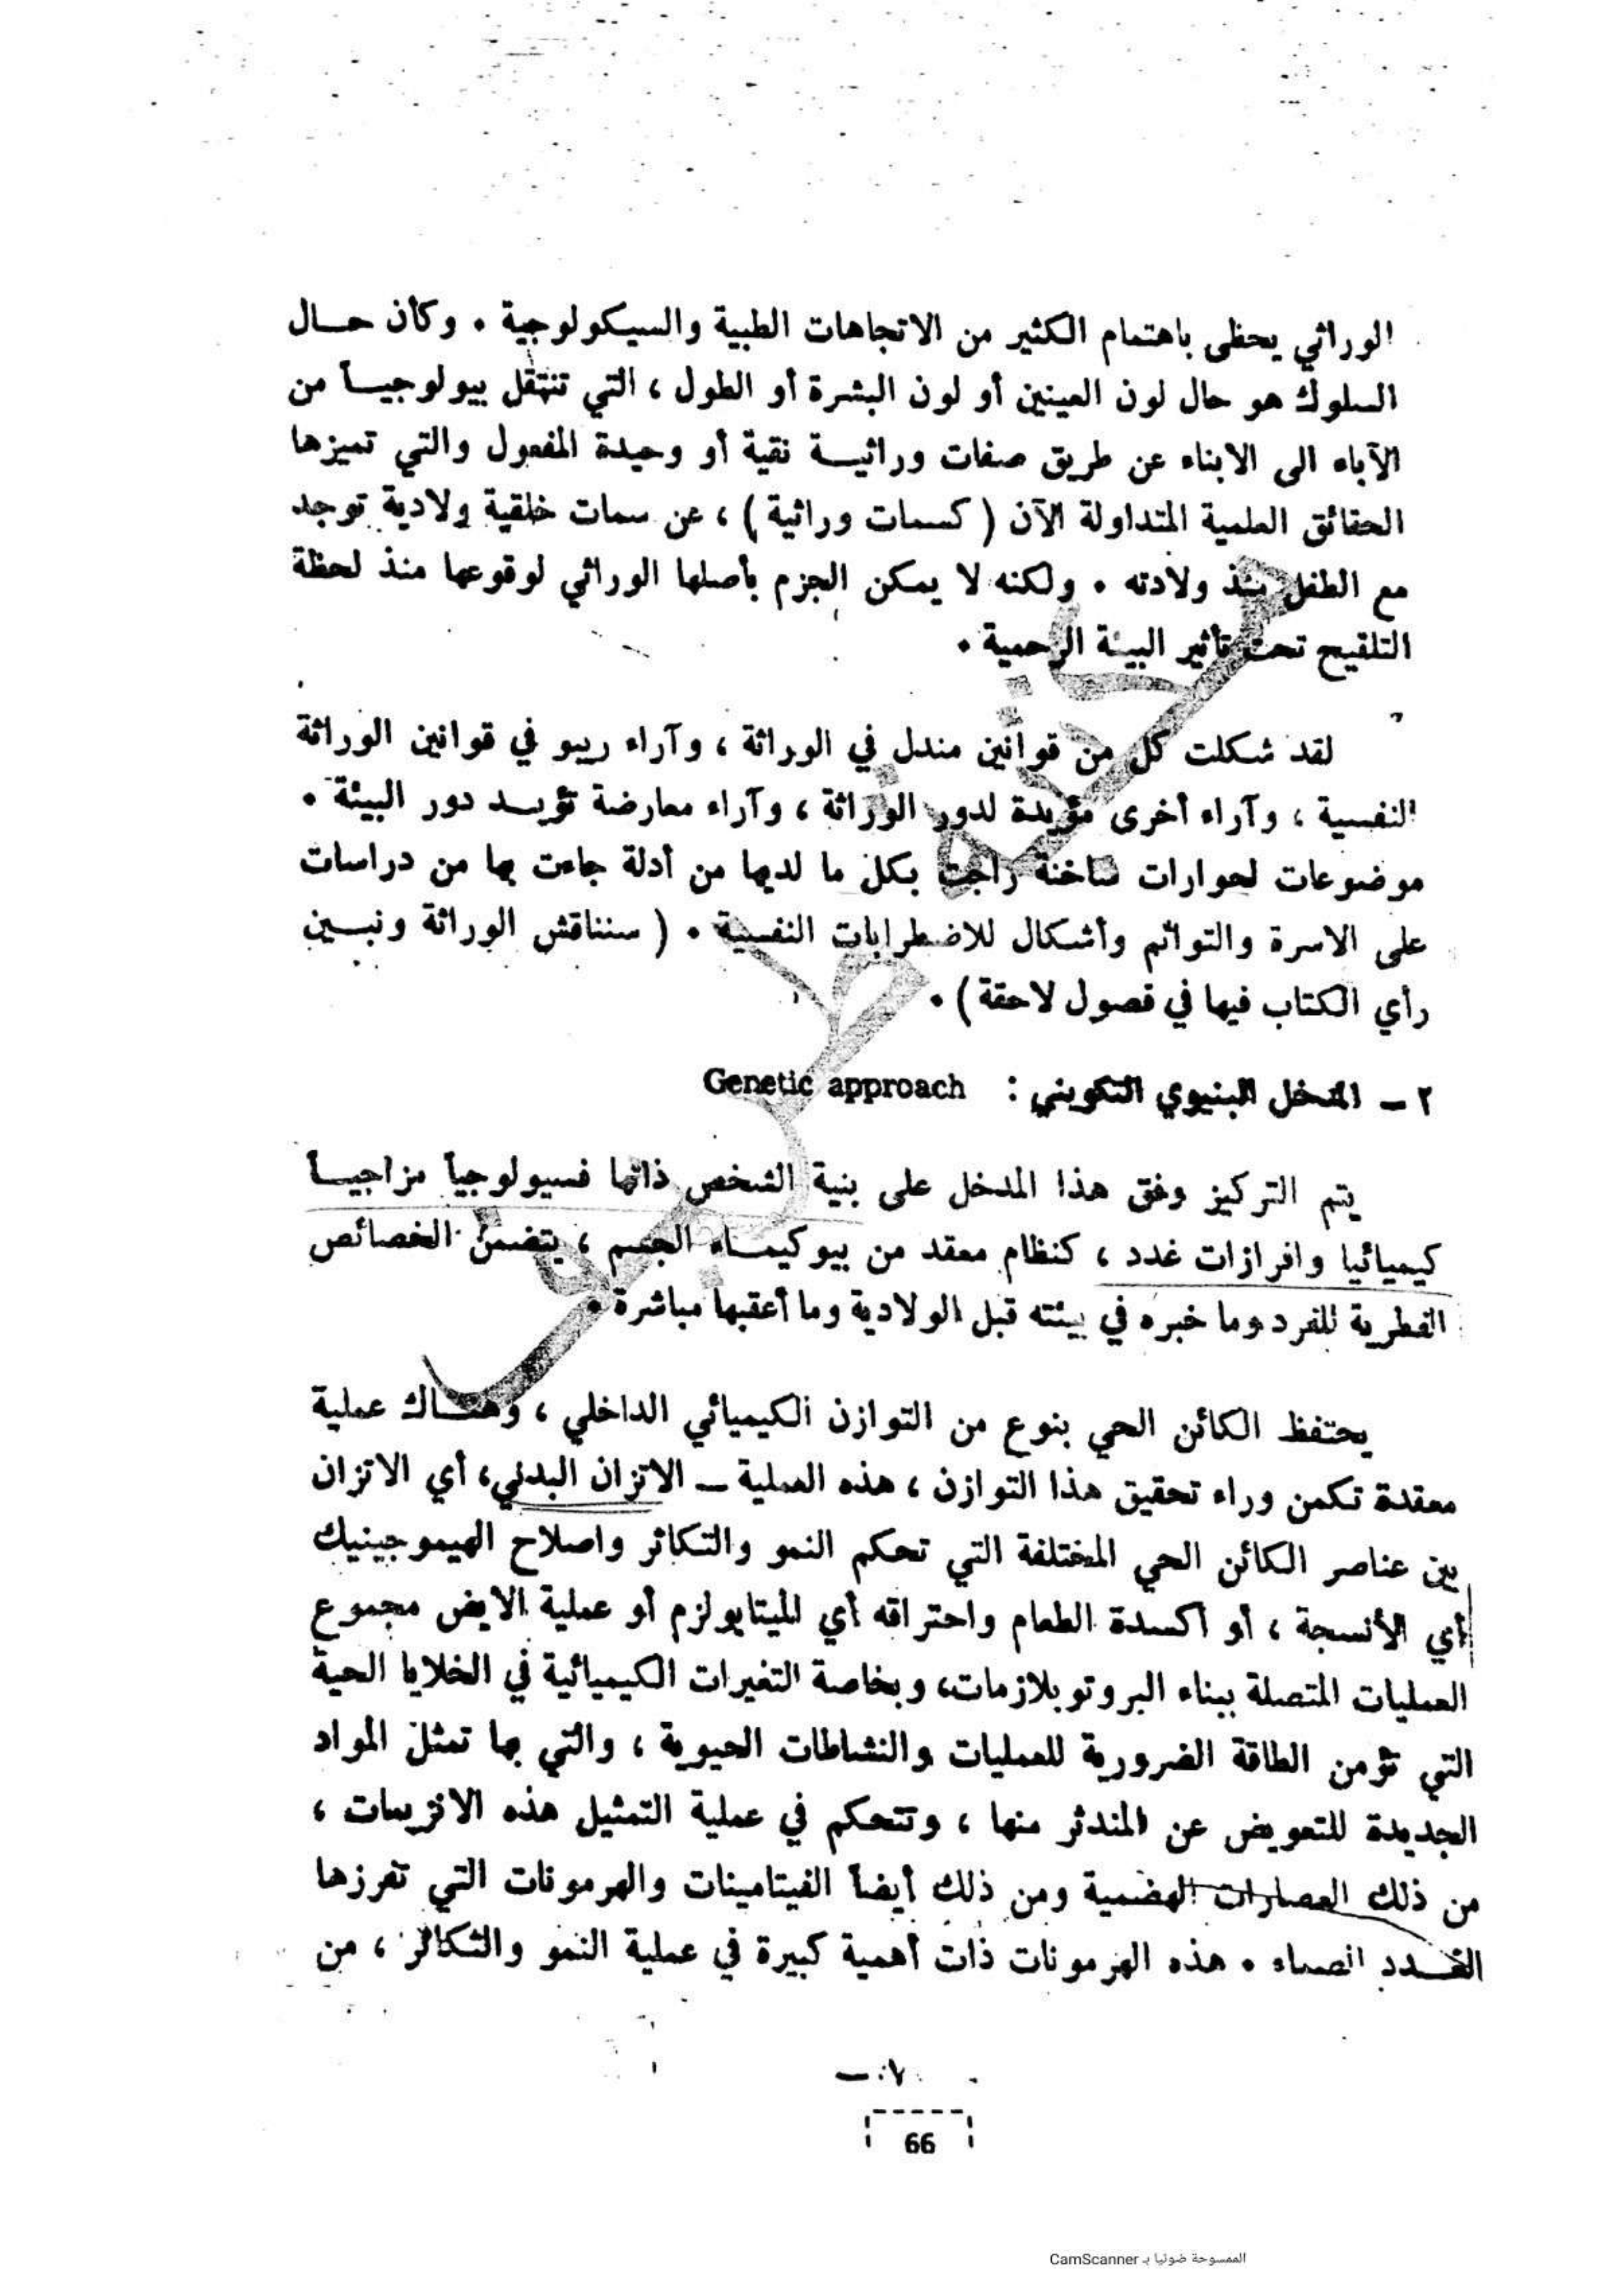 الوراثي يحظى باهتمام الكثير من الاتجاهات الطبية والسيكولوجية . وكأن حــال
السلوك هو حال لون العينين أو لون البشرة أو الطول ، التي تنتقل بيولوجيــاً من
الآباء الى الابناء عن طريق صفات وراثيــة نقية أو وحيدة المفعول والتي تميزها
الحقائق العلمية المتداولة الآن ( كسمات وراثية ) ، عن سمات خلقية ولادية توجد
مع الطفل منذ ولادته . ولكنه لا يمكن الجزم بأصلها الوراثي لوقوعها منذ لحظة
التلقيح تحت تأثير البيئة الرحمية .
لقد شكلت كل من قوانين مندل في الوراثة ، وآراء ريبو في قوانين الوراثة
النفسية ، وآراء أخرى مؤيدة لدور الوراثة ، وآراء معارضة تؤيــد دور البيئة .
موضوعات لحوارات ساخنة راجت بكل ما لديها من أدلة جاءت بها من دراسات
على الاسرة والتوائم وأشكال للاضطرابات النفسية . ( سنناقش الوراثة ونبــين
رأي الكتاب فيها في فصول لاحقة ) .
٢ ــ المدخل البنيوي التكويني : Genetic approach
يتم التركيز وفق هذا المدخل على بنية الشخص ذاتها فسيولوجياً مزاجيــاً
كيميائيا وافرازات غدد ، كنظام معقد من بيوكيمــاء الجسم ، يتضمن الخصائص
الفطرية للفرد وما خبره في بيئته قبل الولادية وما أعقبها مباشرة .
يحتفظ الكائن الحي بنوع من التوازن الكيميائي الداخلي ، وهنــاك عملية
معقدة تكمن وراء تحقيق هذا التوازن ، هذه العملية ــ الاتزان البدني، أي الاتزان
بين عناصر الكائن الحي المختلفة التي تحكم النمو والتكاثر واصلاح الهيموجينيك
أي الأنسجة ، أو اكسدة الطعام واحتراقه أي الميتابولزم أو عملية الايض مجموع
العمليات المتصلة ببناء البروتوبلازمات، وبخاصة التغيرات الكيميائية في الخلايا الحية
التي تؤمن الطاقة الضرورية للعمليات والنشاطات الحيوية ، والتي بها تمثل المواد
الجديدة للتعويض عن المندثر منها ، وتتحكم في عملية التمثيل هذه الانزيمات ،
من ذلك العصارات الهضمية ومن ذلك أيضاً الفيتامينات والهرمونات التي تفرزها
الغــدد الصماء . هذه الهرمونات ذات أهمية كبيرة في عملية النمو والتكاثر ، من
66
الممسوحة ضوئيا بـ CamScanner